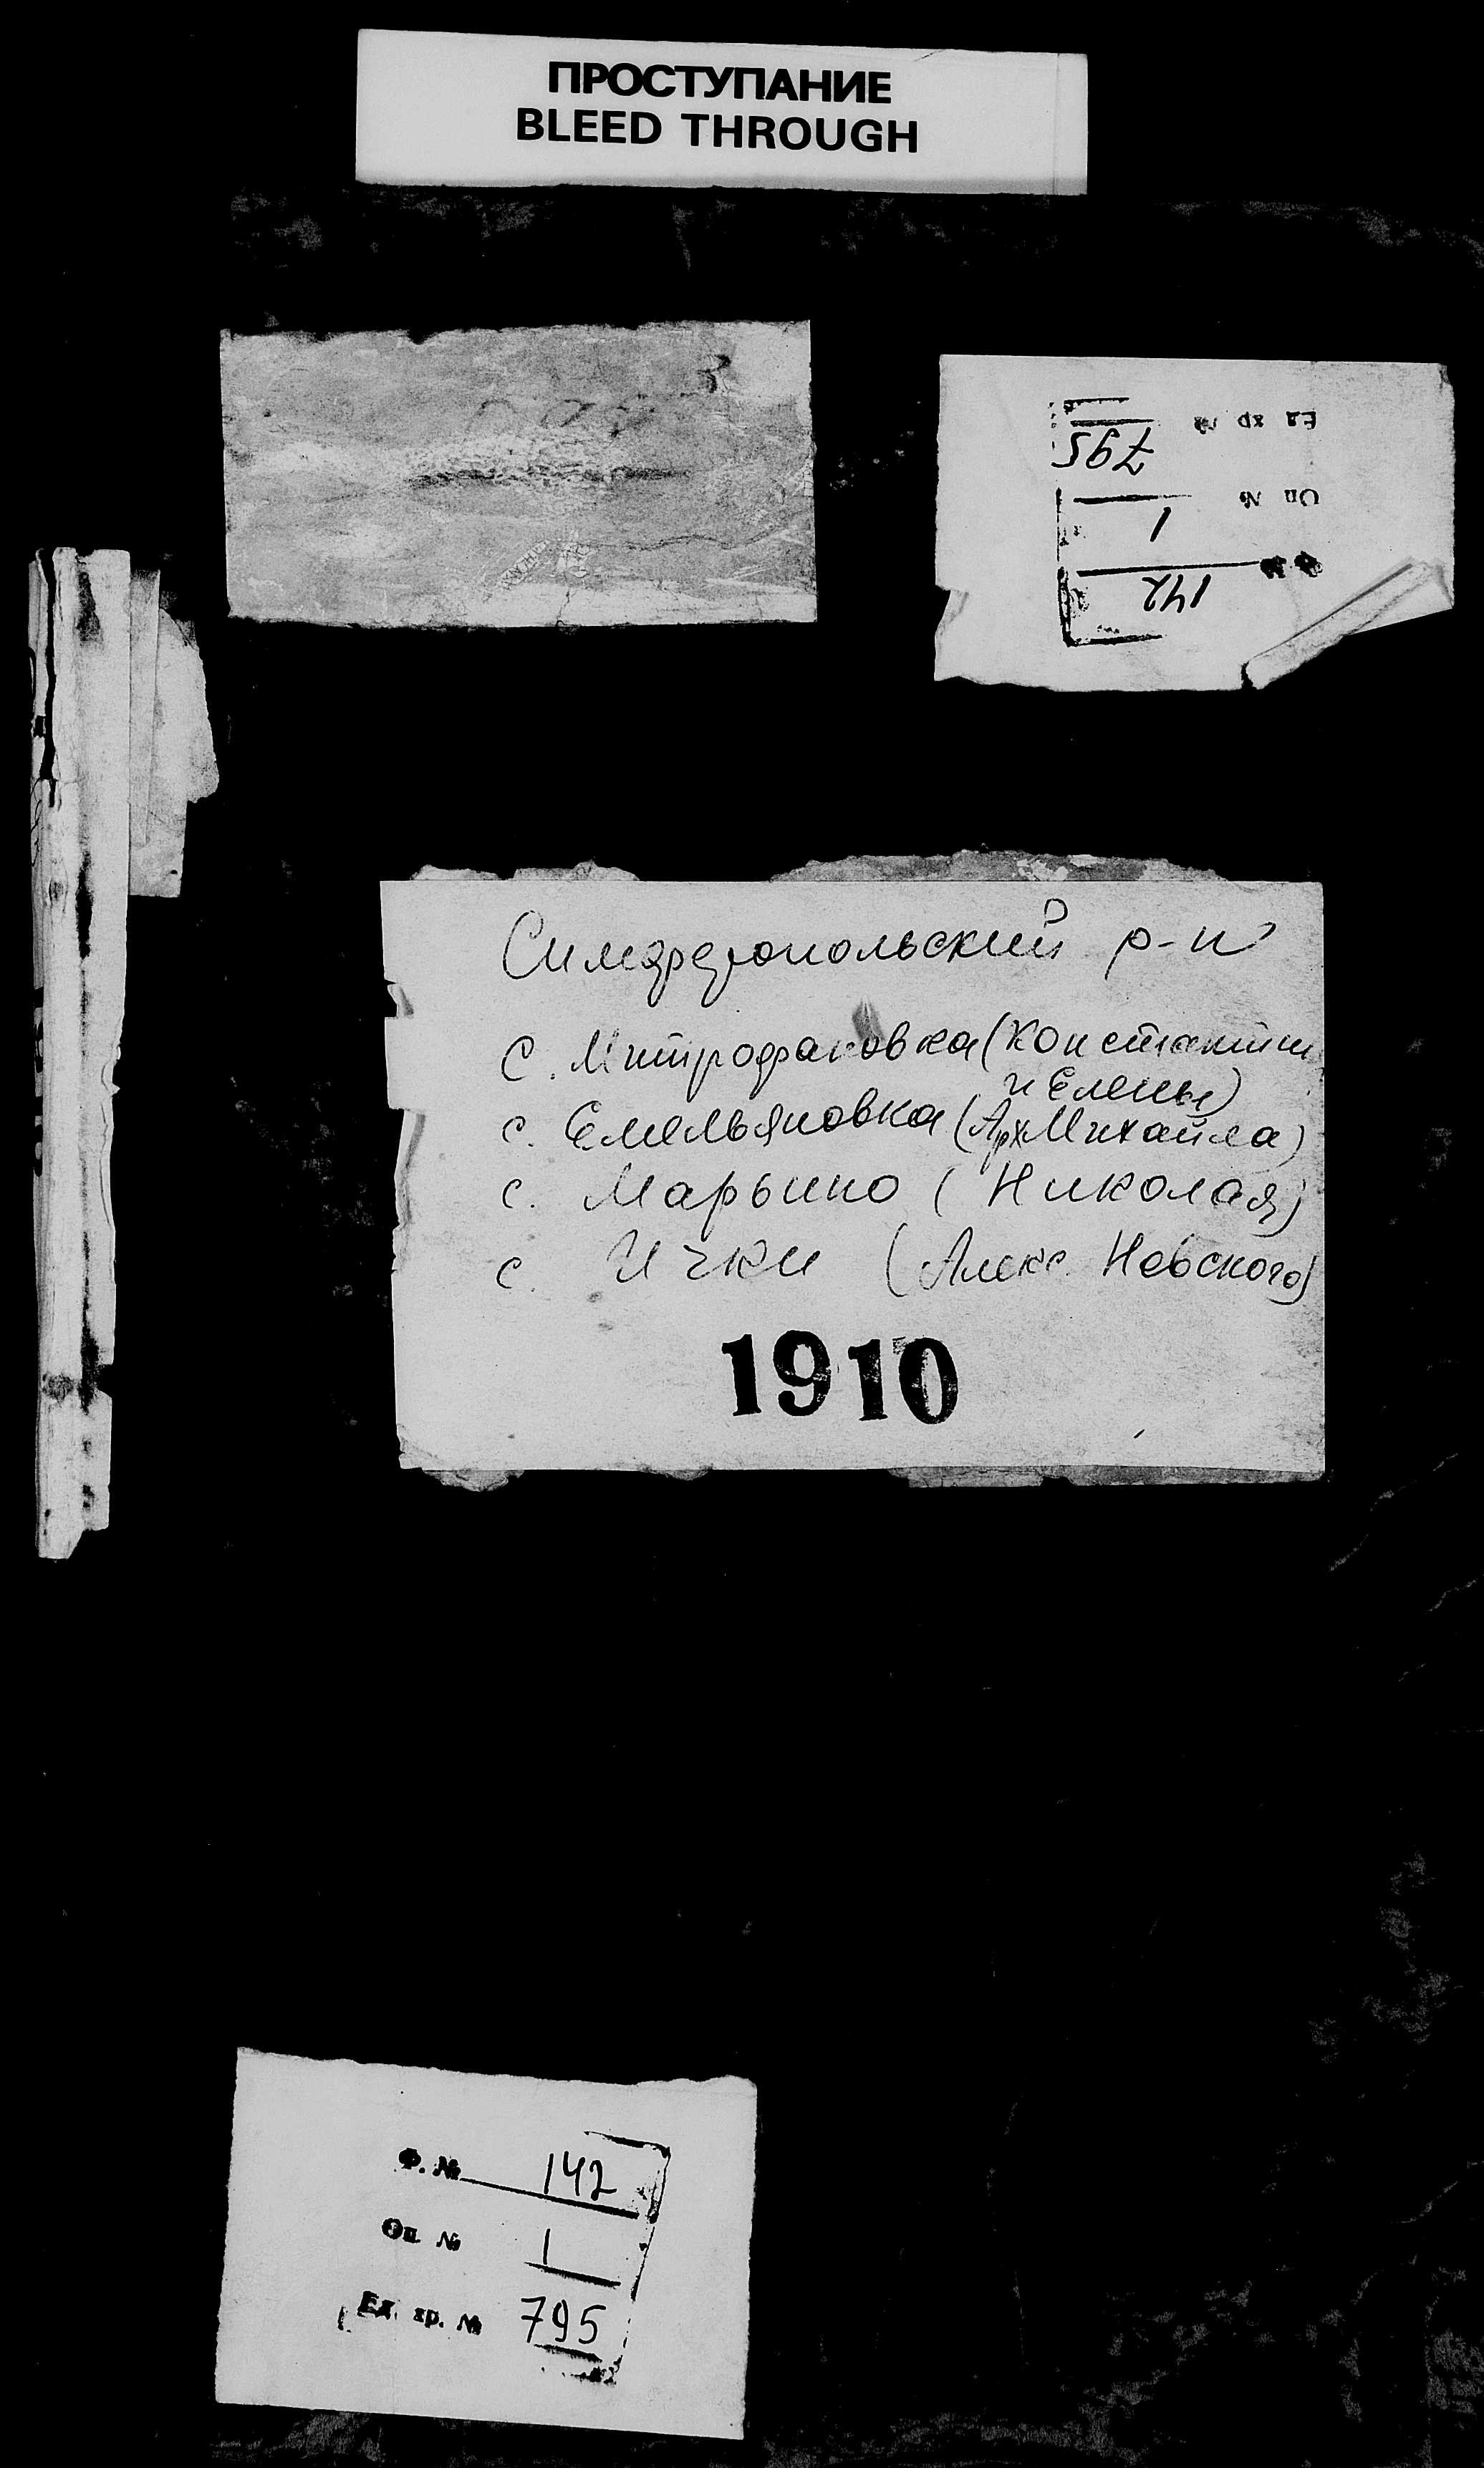 ПРОСТУПАНИЕ
BLEED THROUGH
Ф. № 142
Оп № 1
Ед хр № 795
Симферопольский р-н
с. Митрофановка (Константин
и Елены)
с. Емельяновка (Арх Михаила)
с. Марьино (Николая)
с. Ички (Алекс. Невского)
1910
Ф. № 142
Оп № 1
Ед. хр. № 795